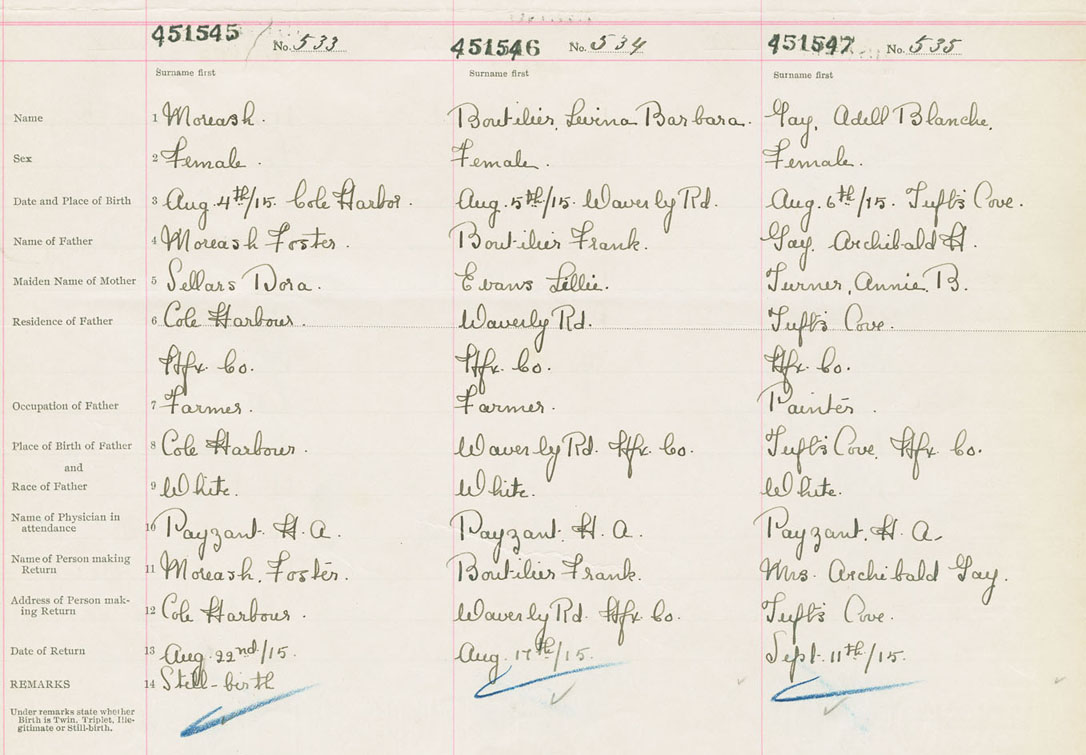 451545 No. 533 451546 No. 534 451547 No. 535
Surname first Surname first Surname first
Name 1 Moreash. Boutilier, Levina Barbara. Gay, Adell Blanche.
Sex 2 Female. Female. Female.
Date and Place of Birth 3 Aug. 4th/15. Cole Harbor. Aug. 5th/15. Waverly Rd. Aug. 6th/15. Tufts Cove.
Name of Father 4 Moreash Foster. Boutilier Frank. Gay, Archibald H.
Maiden Name of Mother 5 Sellars Dora. Evans Lillie. Turner, Annie B.
Residence of Father 6 Cole Harbour. Waverly Rd. Tufts Cove.
Hfx. Co. Hfx. Co. Hfx. Co.
Occupation of Father 7 Farmer. Farmer. Painter.
Place of Birth of Father 8 Cole Harbour. Waverly Rd. Hfx. Co. Tufts Cove, Hfx. Co.
and
Race of Father 9 White. White. White.
Name of Physician in
attendance 10 Payzant. H. A. Payzant, H. A. Payzant, H. A.
Name of Person making
Return 11 Moreash, Foster. Boutilier Frank. Mrs. Archibald Gay.
Address of Person mak-
ing Return 12 Cole Harbour. Waverly Rd. Hfx. Co. Tufts Cove.
Date of Return 13 Aug. 22nd/15. Aug. 17th/15. Sept. 11th/15.
REMARKS 14 Still-birth
Under remarks state whether
Birth is Twin, Triplet, Ille-
gitimate or Still-birth.